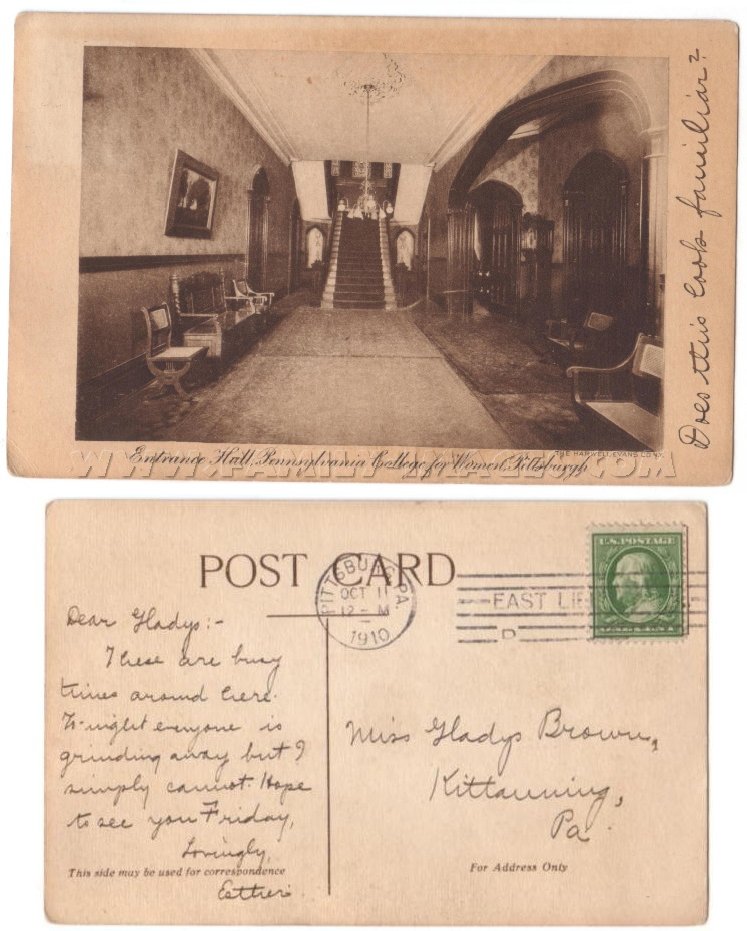 Does this look familiar?
Entrance Hall, Pennsylvania College for Women, Pittsburgh
THE HARWELL EVANS CO. N.Y.
POST CARD
PITTSBURG, PA
OCT 11
12 - M
1910
EAST LI
D
U.S. POSTAGE
Dear Gladys:-
These are busy
times around here.
To-night everyone is
grinding away but I
simply cannot. Hope
to see you Friday,
Lovingly,
Esther.
This side may be used for correspondence
Miss Gladys Brown,
Kittanning,
Pa.
For Address Only